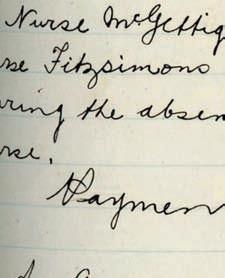 Nurse McGettig
rse Fitzsimons
ring the absen
rse.
Paymen